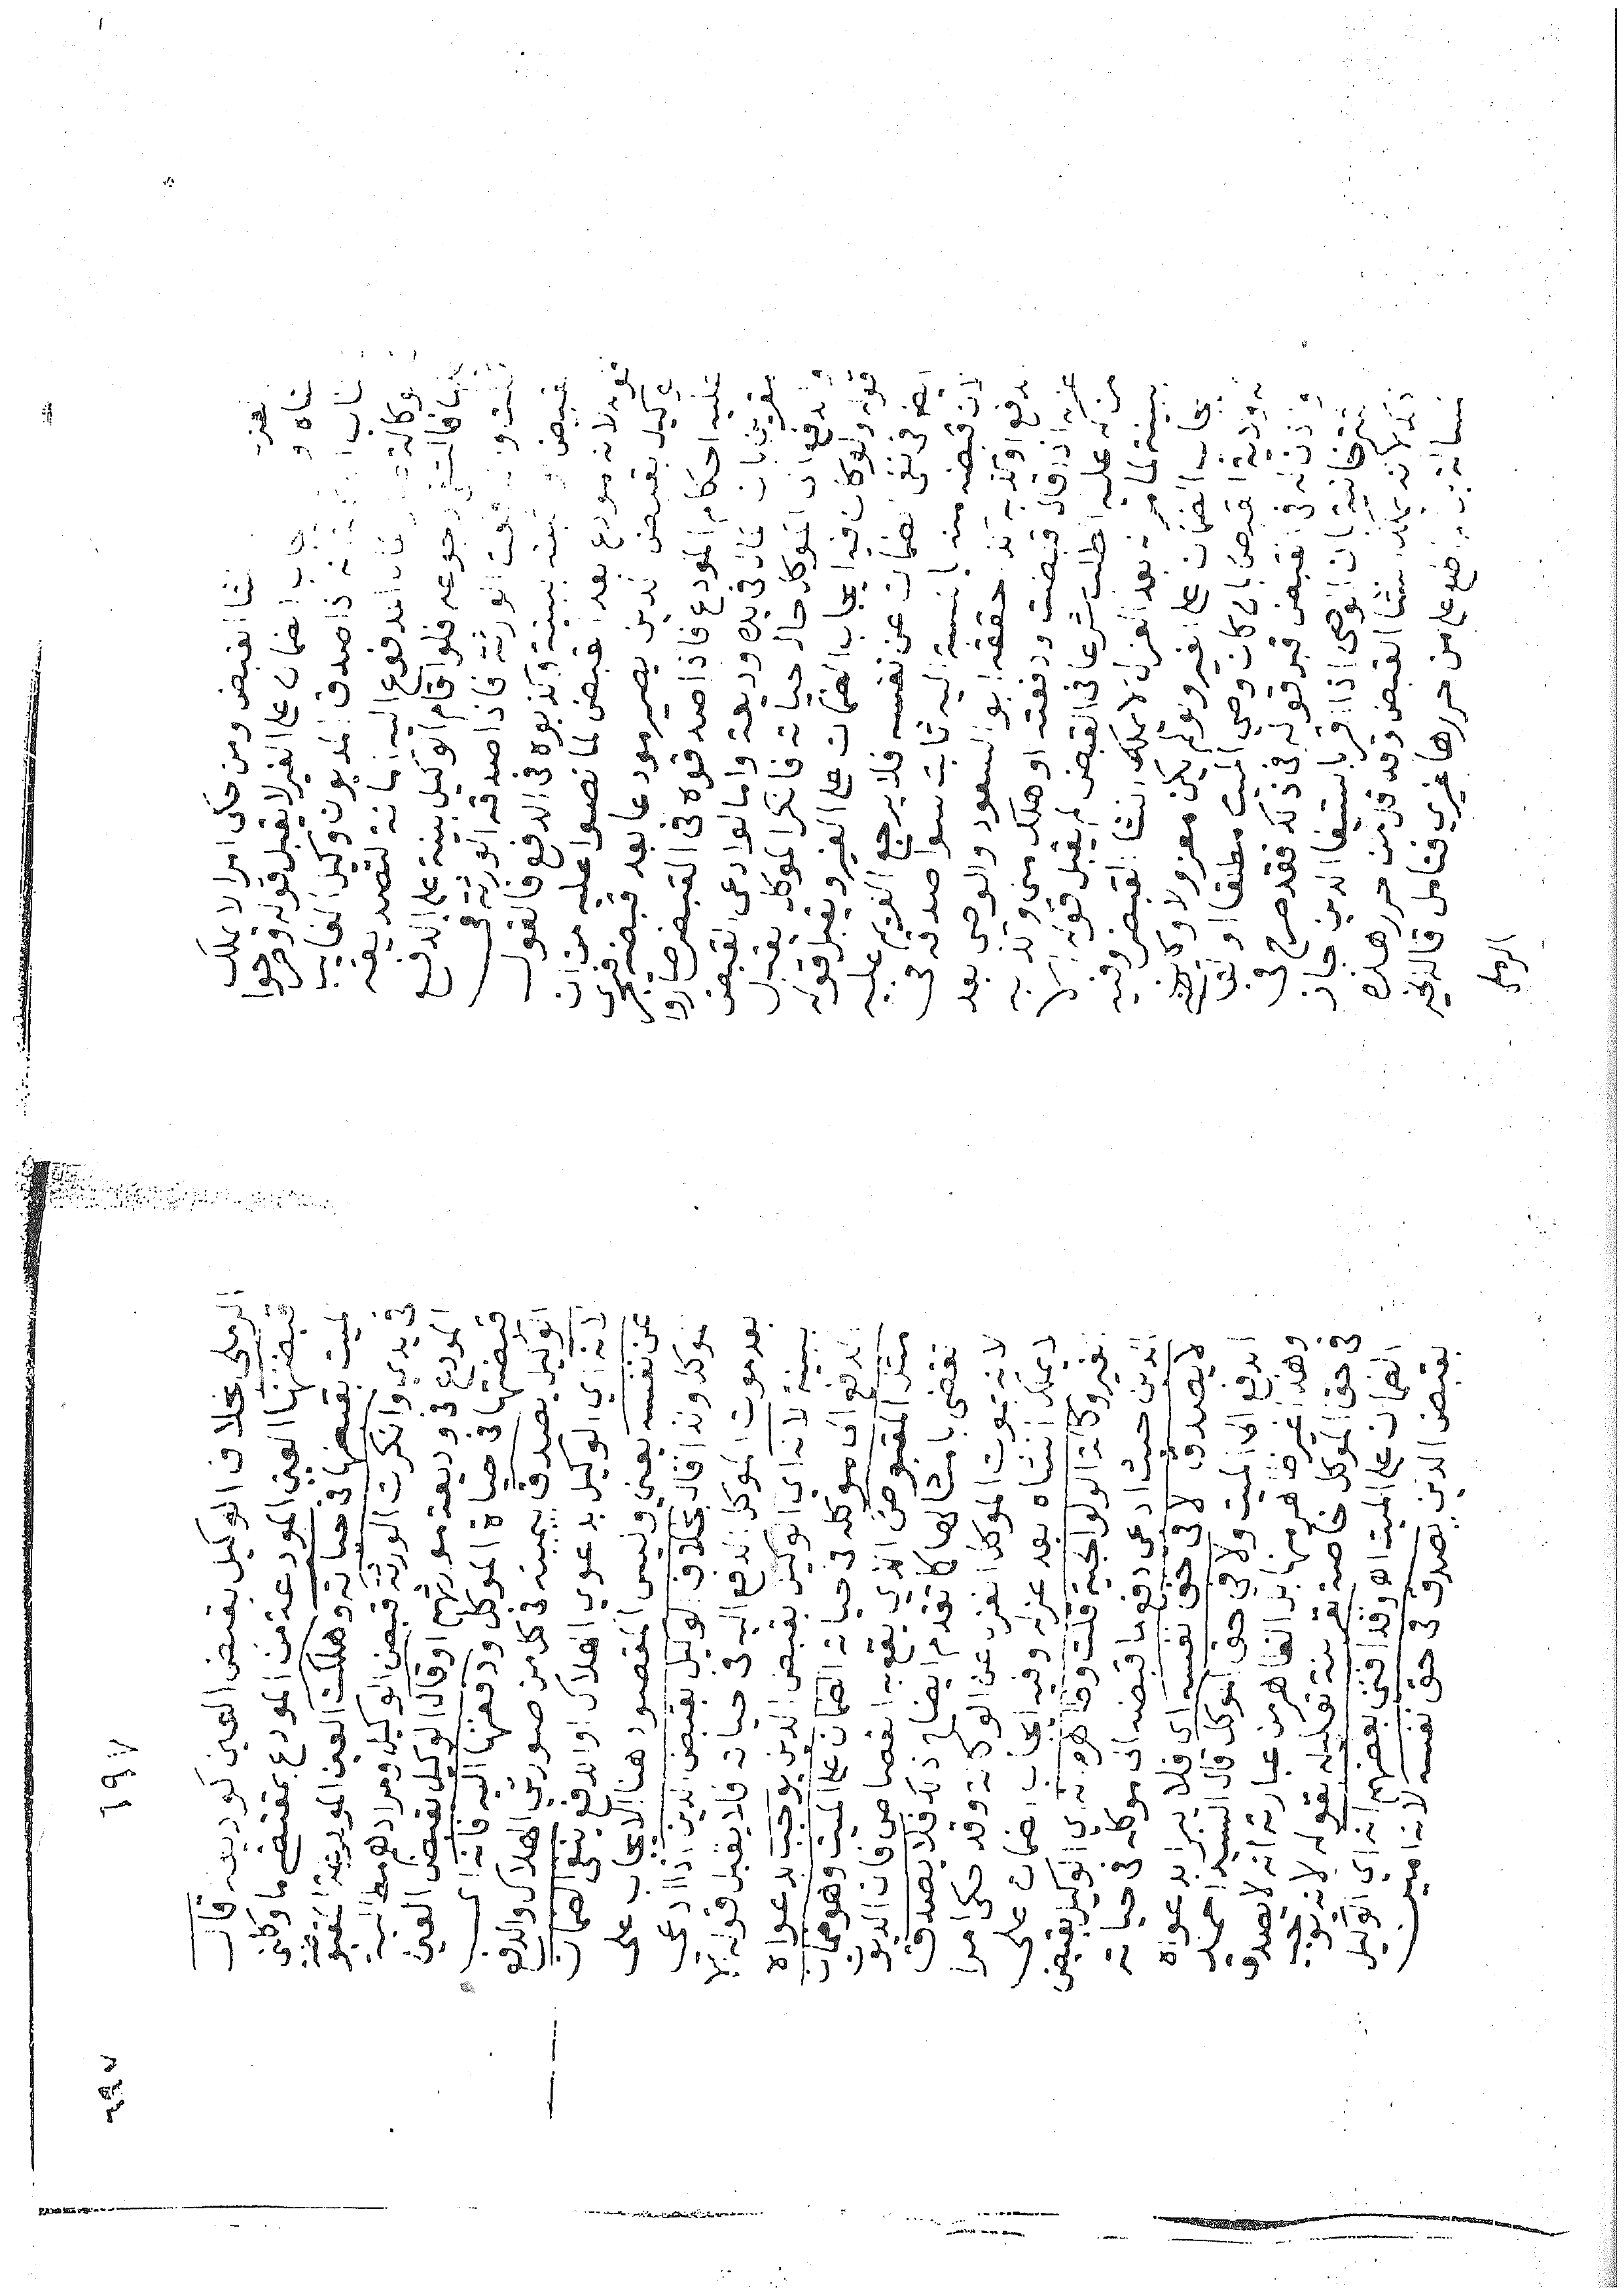 نشا القبض ومن حكى امرا لا يملك
ايجاب الضمان على الغير لا يقبل قوله وصرحوا
اذا صدق المديون وكيل الغايب
وكالة قال الدفع اليه امانة لتصديقه
رجوعه فلو اقام الوكيل بينة على الدفع
الورثة فاذا صدقه الورثة في
القبض ببينة وكذبوه في الدفع فالقول
قوله لانه مودع بعد القبض لما نصوا عليه من ان
الوكيل بقبض الدين يصير مودعا بعد قبضه فتجري
عليه احكام المودع فاذا صدقوه في القبض صاروا
مقرين بان المال في يده وديعة واما لو ادعى القبض
والدفع ان الموكل حال حياته فانكر الموكل يقبل
قوله ولو كان فيه ايجاب الضمان على الغير ويقبل قوله
ايضا في نفي الضمان عن نفسه فلا يرجع الغريم عليه
لان قبضه منه بالنسبة اليه ثابت سوا صدقه في
الدفع او كذبه كذا حققه ابو السعود والوصي بعد
عزله اذا قال قبضت ودفعت او هلك مني وكذبه
من له عليه الطلب شرعا في القبض لم يقبل قوله الا
ببينة لما مر انه بعد العزل لا يملك انشا القبض وفيه
ايجاب الضمان على الغير ولو لم يكن معزولا وكانت
له ولاية القبض بان كان وصي الميت مطلقا او
واذن له في القبض قبر قوله في ذلك فقد صرح في
التتارخانية بان الوصي اذا اقر باستيفا الدين جاز
لانه يملك انشا القبض وقد قل من حرر هذه
المسالة بل لم اطلع على من حررها غيري فتامل قاله خير
الرملى
١٩٧
الرملى بخلاف الوكيل بقبض العين كوديعة قال
قبضتها العين المودعة من المودع بمقتضى ما وكلني
الميت بقبضها في حياته وهلكت العين المودعة المقبوضة
في يدي وانكرت الورثة قبض الوكيل ومرادهم مطالبة
المودع في وديعة مورثهم او قال الوكيل بقبض العين
قبضتها في حياة الموكل ودفعتها اليه فانه اي
الوكيل يصدق بيمينه في كل من صورتي الهلاك والدفع
لانه اي الوكيل بدعوي الهلاك والدفع ينفي الضمان
عن نفسه يعني وليس المقصود هنا الايجاب على
موكله ولذا قال بخلاف الوكيل بقبض الدين اذا ادعى
بعد موت الموكل الدفع اليه في حياته فلا يقبل قوله الا
ببينة لانه اي الوكيل بقبض الدين يوجب بدعواه
الدفع الى موكله في حياته الضمان على الميت وهو ضمان
مثل المقبوض الذي يقع به القصاص فان الديون
تقضى بامثالها كما تقدم ايضاح ذلك فلا يصدق
لانه بموت الموكل انعزل عن الوكالة وقد حكى امرا
لا يملك انشاه بعد عزله وفيه ايجاب الضمان على
الغير وكذا الولوالجية قلت وظاهره اي الوكيل بقبض
الدين حيث ادعى دفع ما قبضه الى موكله في حياته
لا يصدق لا في حق نفسه اي فلا يبرا بدعواه
الدفع الى الميت ولا في حق الموكل قال السيد احمد
وهذا غير ظاهر منها بل الظاهر من عبارته انه لا يصدق
في حق الموكل خاصة بقرينة تعليله بقوله لانه يوجب
الضمان على الميت اه وقد افتى بعضهم انه اي الوكيل
بقبض الدين يصدق في حق نفسه لانه امين